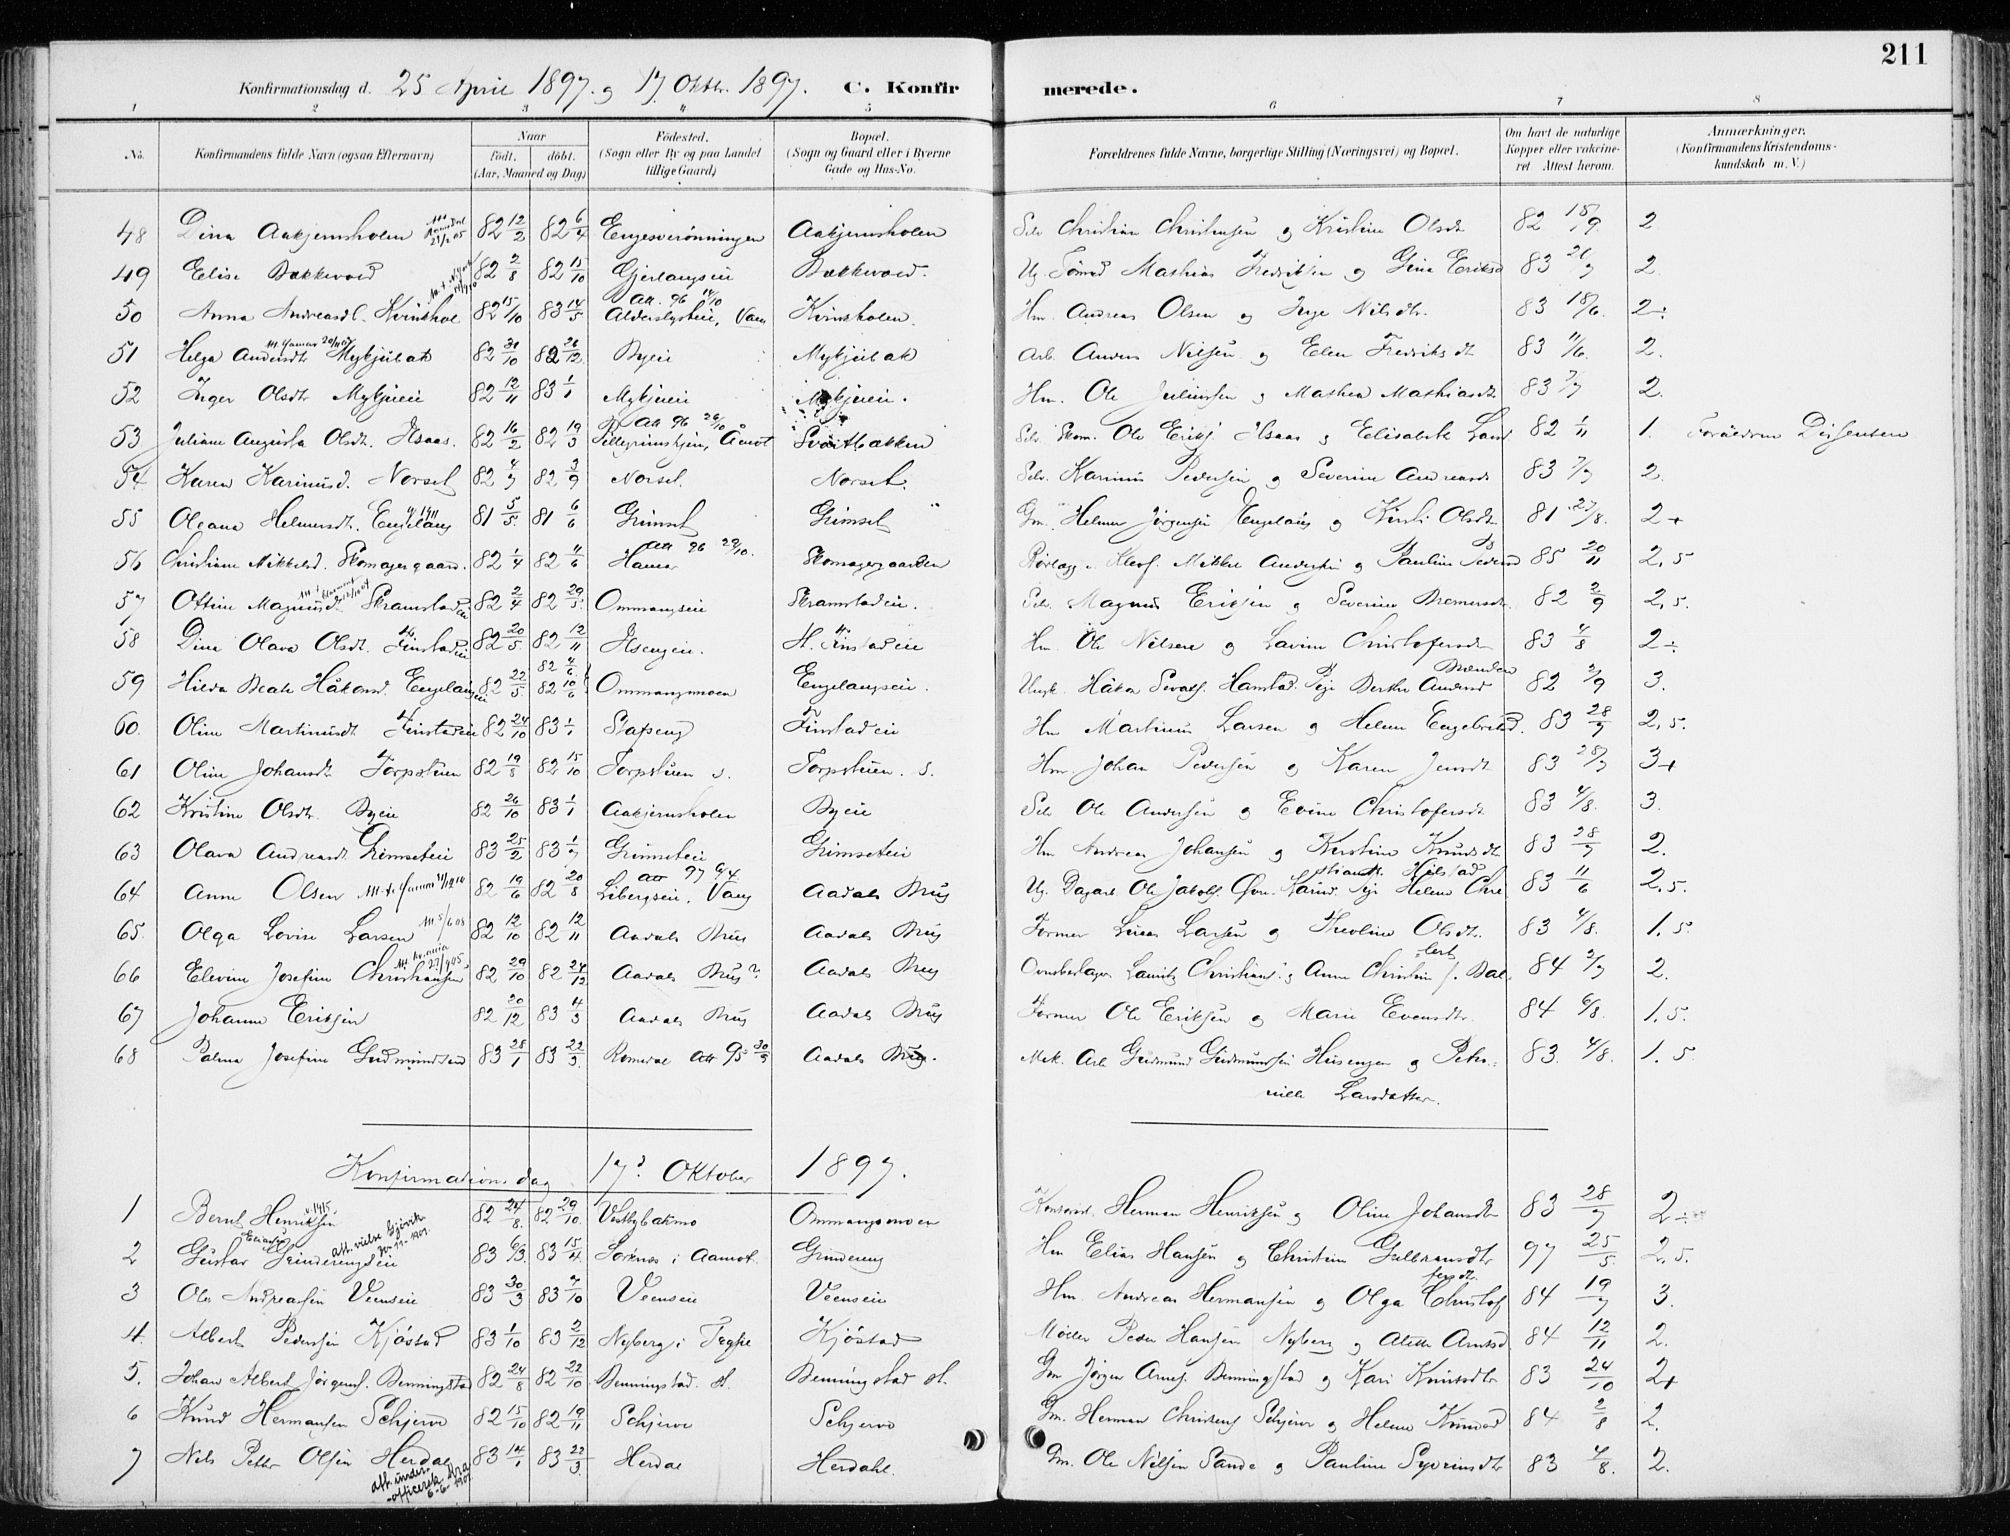 211
Konfirmationsdag d. 25 April 1897 og 17 Oktbr. 1897. C. Konfirmerede.
1 2 3 4 5 6 7 8
No. Konfirmandens fulde Navn (ogsaa Efternavn) Naar født. døbt. (Aar, Maaned og Dag) Fødested. (Sogn eller By og paa Landet tillige Gaard) Bopæl. (Sogn og Gaard eller i Byerne Gade og Hus-No. Forældrenes fulde Navne, borgerlige Stilling (Næringsvei) og Bopæl. Om havt de naturlige Kopper eller vakcineret Attest herom. Anmærkninger. (Konfirmandens Kristendomskundskab m. V.)
48 Dina Aakjernsholen 82 12/2 82 6/4 Engesverønningen Aakjernsholen Selv. Christian Christensen og Kristine Olsdt 82 18/9 2
49 Elise Bækkevold 82 2/8 82 15/10 Gjerlaugseie Bækkevold. Mathias Fredriksen og Gina Eriksd 83 2.
50 Anna Andreasd. Kvinshol 82 15/10 83 14/5 Att. 96 14/10 Vang Kvinsholen. Hm. Andreas Olsen og Inge Nilsdtr. 83 18/6. 2÷
51 Helga Andersdtr Mykjulbak 82 82 26/12 Byeie Mykjulbak Arb. Anders Nilsen og Elen Fredriksdt 83 11/6. 2.
52 Inger Olsdtr Mykjueie 82 12/11 83 1/1 Mykjueie Mykjueie. Hm. Ole Juliussen og Mathea Mathiasdt 83 7/7 2.
53. Juliane Augusta Olsdt. Ilsaas. 82 16/2 82 19/3 Att 96 26/10 Aamot Svartbækken Selv. Skom. Ole Eriks. Ilsaas og Elisabeth 82 1/11 1. Forældrene Dissentere
54 Karen Karinusd. Norset 82 4/7 82 3/9 Norset. Norset. Selv. Karinus Pedersen og Severine Andreasdt 83 7/7 2.
55 Oleana Helmersdt. Engelaug 81 5/5. 81 6/6 Grimset Grimset Gm. Helmer Jørgensen Engelaug og Kirsti Olsdt 81 23/8. 2+
56 Christiane Mikkelsd. Skomagergaard. 82 1/4 82 11/6 Att 96 29/10. Hamar Skomagergaarden Mikkel Andersen og Pauline Pedersd 85 20/11 2,5
57 Ottine Magnusd. Skramstadeie 82 2/4 82 29/5. Ommangseie Skramstadeie. Selv. Magnus Eriksen og Severine 82 2/9 2,5.
58 Dina Olava Olsdt. Finstadeie 82 20/5 82 12/11 Ilsengeie. N. Finstadeie Hm. Ole Nilsen og Lavine Christofersdt 83 4/8 2÷
59 Hilda Beate Håkensd. Engelaugeie 82 22/5 82 4/6 82 10/6 Ommangmoen Engelaugseie. Ungk. Håken Hamstad. Pige Berthe Andersd Brænden 82 2/9 3.
60. Oline Martinusdt Finstadeie 82 24/10 83 1/1 Stafseng Finstadeie Hm Martinus Larsen og Helene Engebretsd. 83 28/7 2,5
61 Oline Johansdt Torpstuen 82 19/8 82 15/10 Torpstuen s. Torpstuen. s. Hm. Johan Pedersen og Karen Jensdt 83 28/7 3+
62 Kristine Olsdtr. Byeie 82 26/10 83 1/1 Aakjernsholen Byeie Selv Ole Andersen og Evine Christofersdt 83 4/8. 3.
63 Olava Andreasdt. Grimseteie 83 25/2 83 1/7 Grimseteie Grimseteie Hm Andreas Johansen og Kirstine Knudsdt 83 28/7 2.
64 Anne Olsen 82 19/6 82 20/8 att 97 6/4 Libergseie, Vang Aadals Brug Ug. Dagarb. Ole Jakobs. Pige Helene 83 11/6 2.5.
65. Olga Lovise Larsen 82 12/10 82 12/11 Aadals Brug Aadals Brug Former Lucas Larsen og Theoline Olsdt. 83 4/8. 1.5.
66 Elevine Josefine Christiansen 82 29/10 82 24/12 Aadals Brug? Aadals Brug Lauritz Christians. og Anne Christine 84 2/7 2.
67 Johanne Eriksen 82 20/12 83 4/3 Aadals Brug Aadals Brug Former Ole Eriksen og Marie Evensdtr. 84 6/8. 1.5.
68 Palma Josefine Gudmundsen 83 28/1 83 22/3. Romedal Att 95 30/9 Aadals Brug. Mek. Arb. Gudmund Gudmundsen Husengen og Petronille Larsdatter. 83. 4/8. 1.5
Konfirmationsdag 17d Oktober 1897.
1 Bernt Henriksen 82 24/8. 82 29/10. Vestbybakmo Ommangsmoen Herman Henriksen og Oline Johansdt 83 28/7 2÷
2 Gustav Eliassen Grinderengseie att. vielse Gjøvik 30-11-1901. 83 6/3. 83 15/4. Sorknæs i Aamot. Grindereng Hm Elias Hansen og Christine Gulbransdtr 97 25/5. 2,5.
3 Ole Andreasen Veenseie 83 30/3 83 7/10 Veenseie Veenseie Hm. Andreas Hermansen og Olga Christoffersdtr. 84 19/7 3.
4. Albert Pedersen Kjøstad 83 1/10 83 2/12 Nyberg i Kjøstad Møller Peder Hansen Nyberg og Alette 84 12/11 2.
5. Johan Albert Jørgens. Benningstad 82 24/8 82 22/10 Benningstad. Benningstad Gm Jørgen Arnes. Benningstad og Kari Knudsdtr 83 24/10 2+
6 Knud Hermansen Schjerve 82 15/10 82 19/11 Schjerve Schjerve Gm. Herman Christens. Schjerve og Helene Knudsd 84 2/8 2.
7 Nils Petter Olsen Herdal 83 14/1 83 22/3. Herdal Herdahl. Gm. Ole Nilsen Sande og Pauline Syverinsdtr 83 4/8. 2.
att. under-officersk. 6-6-1901.